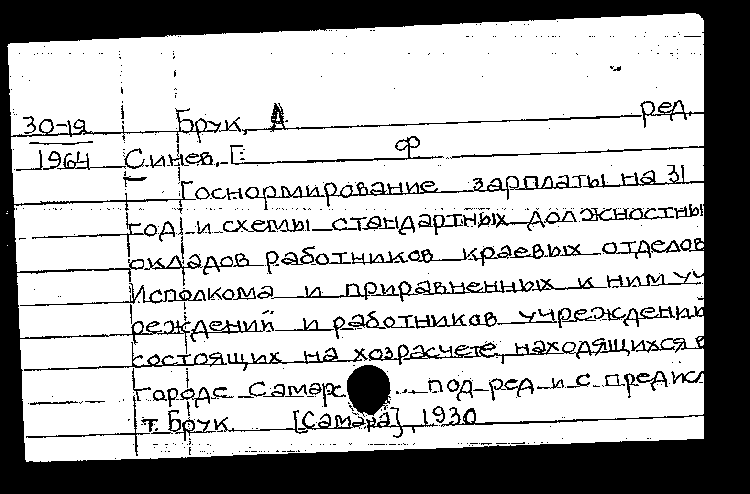 30-19 Брук, А ред.
1964 Синев, Г ф
Госнормирование зарплаты на 31
год и схемы стандартных должностны
окладов работников краевых отделов
Исполкома и приравненных к ним уч
реждений и работников учреждений
состоящих на хозрасчете, находящихся в
городе Самаре ... под ред и с предисл
т. Брук. [Самара], 1930